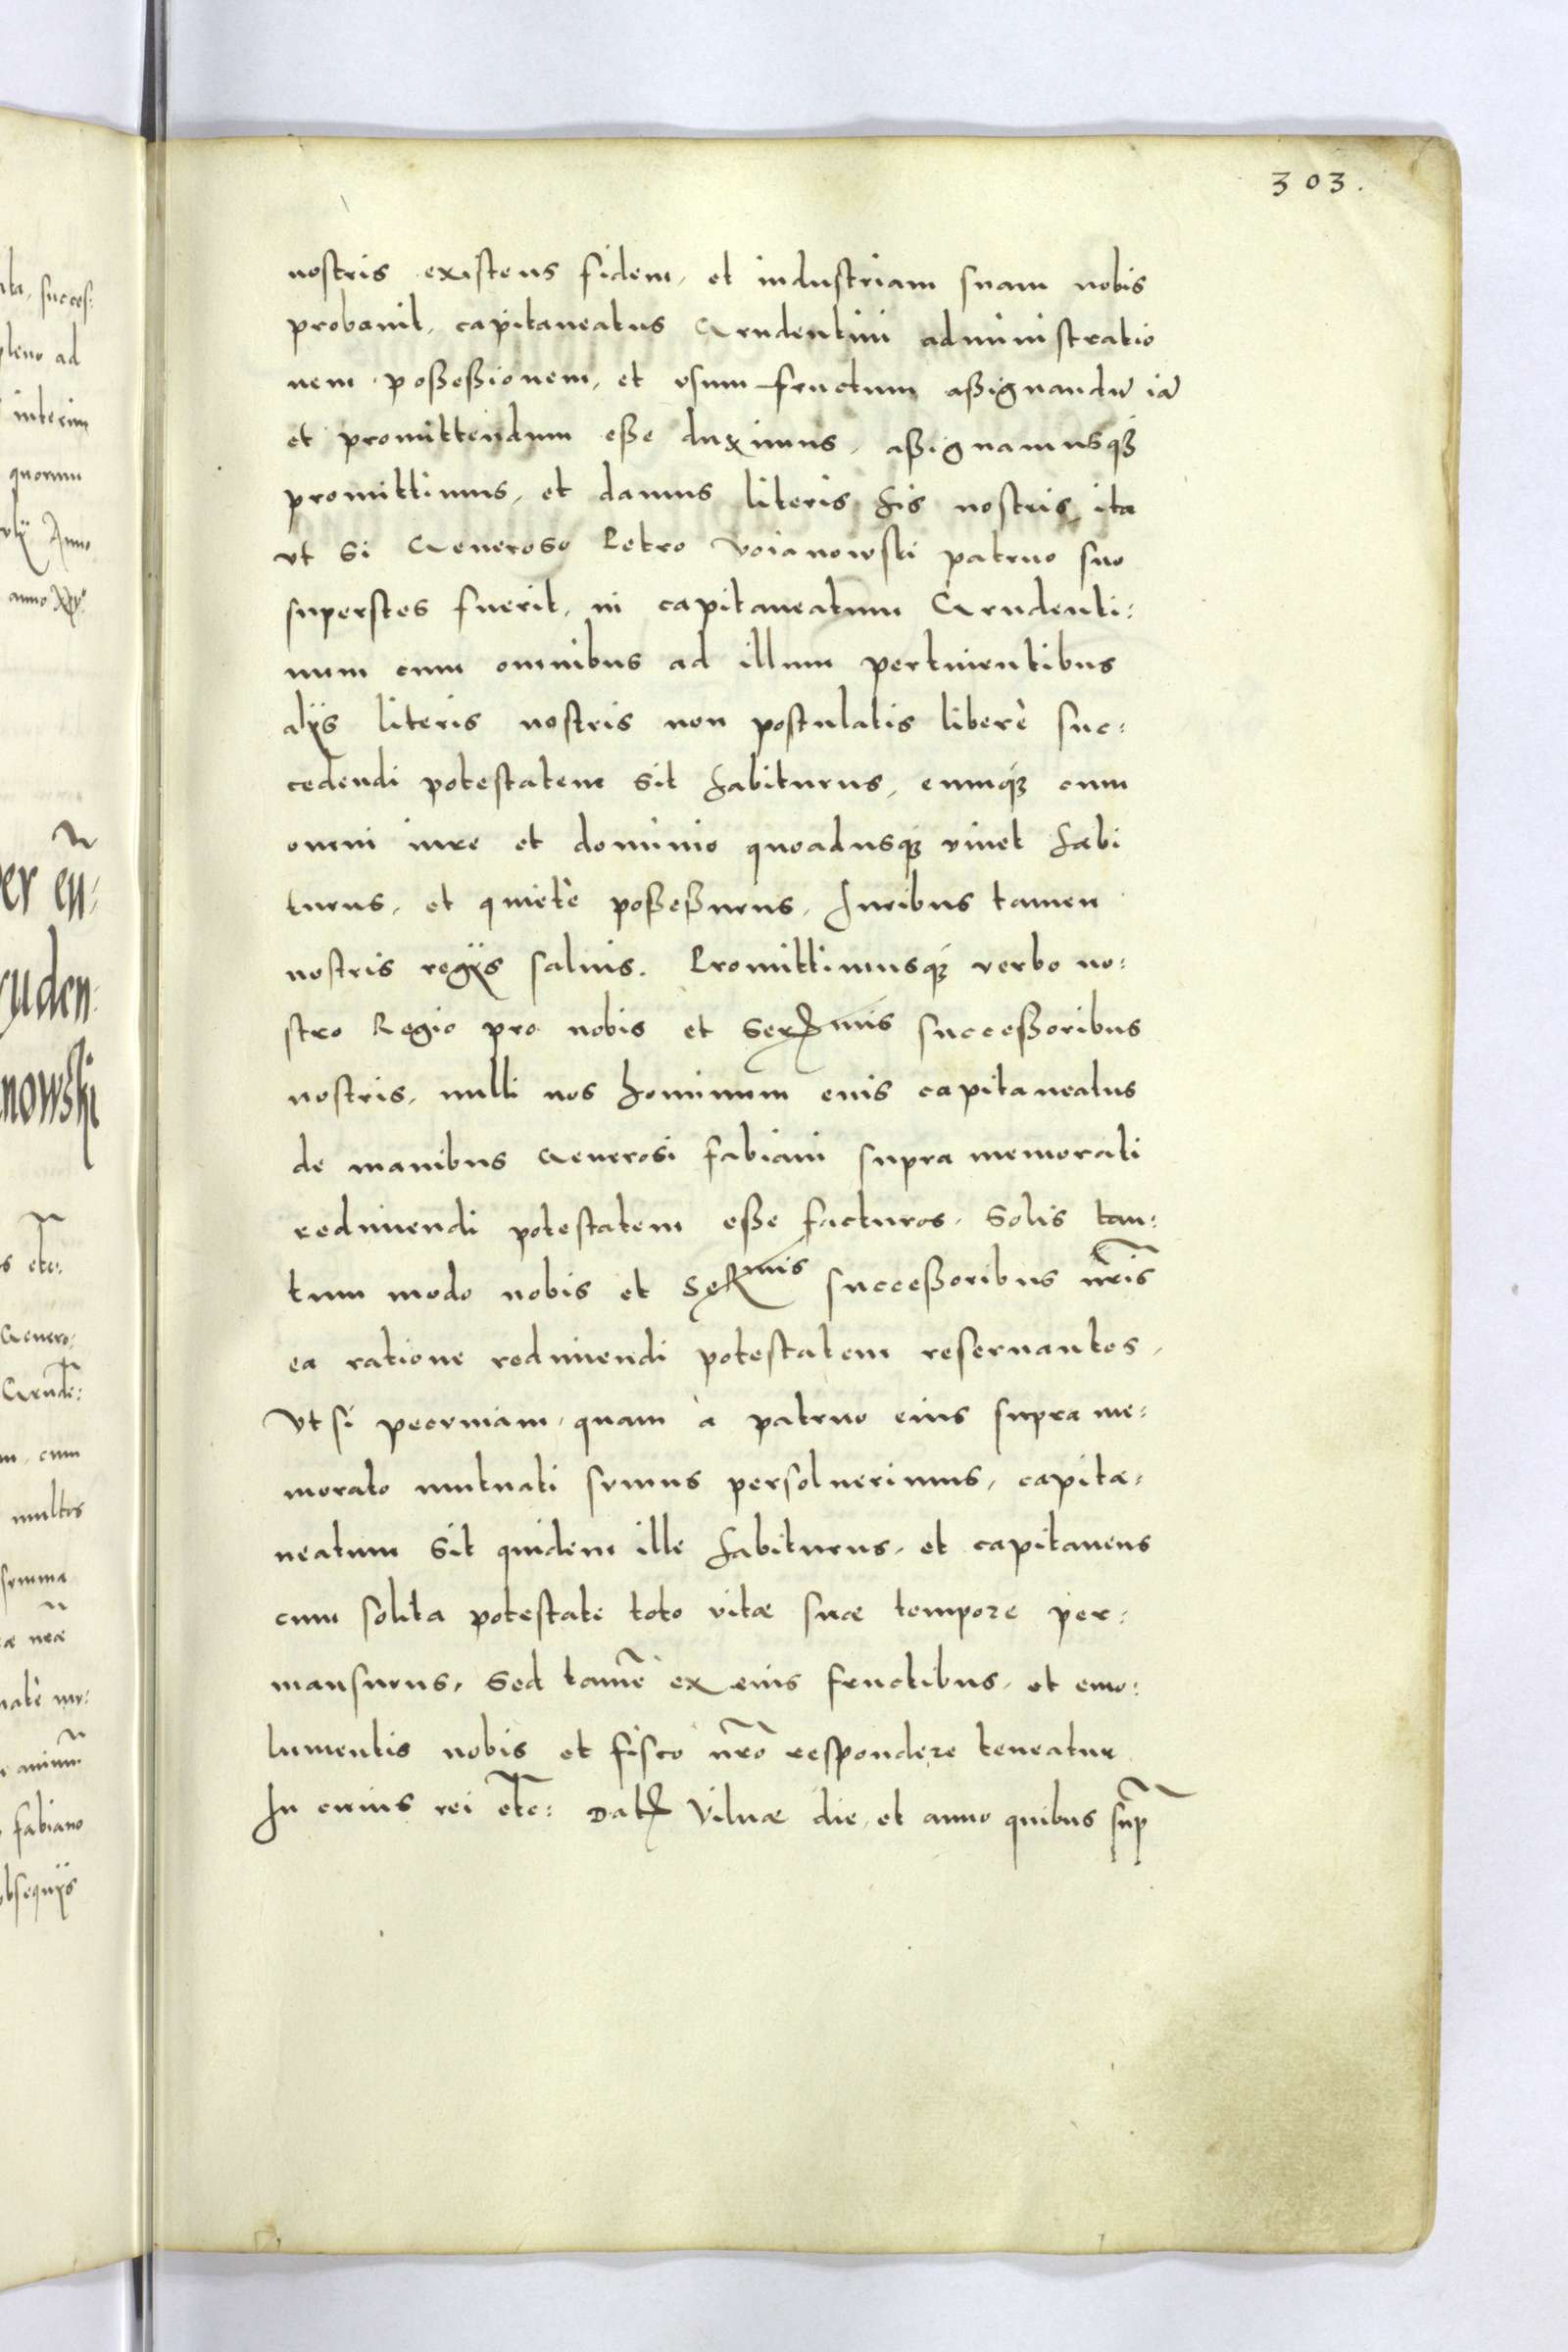 303.
nostris existens fidem, et industriam suam nobis
probauit, capitaneatus Grudentini administratio
nem possessionem, et vsum fructum assignandū iā
et promittendum esse duximus, assignamusq3
promittimus, et damus literis his nostris, ita
vt si Generoso Petro Voianowski patruo suo
superstes fuerit, in capitaneatum Grudenti:
num cum omnibus ad illum pertinentibus
alijs literis nostris non postulatis liberè suc:
cedendi potestatem sit habiturus, eumq3 cum
omni iure et dominio quoadusq3 viuet habi
turus, et quietè possessurus, Iuribus tamen
nostris regijs saluis. Promittimusq3 verbo no:
stro Regio pro nobis et Ser mis successoribus
nostris, nulli nos hominum euis capitaneatus
de manibus Generosi Fabiani supra memorati
redimendi potestatem esse facturos, Solis tan:
tum modo nobis et Ser mis successoribus nr̃is
ea ratione redimendi potestatem reseruantes,
Vt si pecuniam, quam à patruo eius supra me:
morato mutuati sumus persoluerimus, capita:
neatum sit quidem ille habiturus, et capitaneus
cum solita potestate toto vitæ suæ tempore per:
mansurus, sed tamē ex eius fructibus, et emo:
lumentis nobis et fisco nr̃o respondere teneatur
In cuius rei etc: Dat Vilnæ die, et anno quibus sup̃
ita, succes:
pleno ad
interim
quorum
Anno
anno
ruden:
nowski
s etc.
Genero:
Grudē:
m, cum
multos
summa
æ nræ
Fabiano
obsequijs